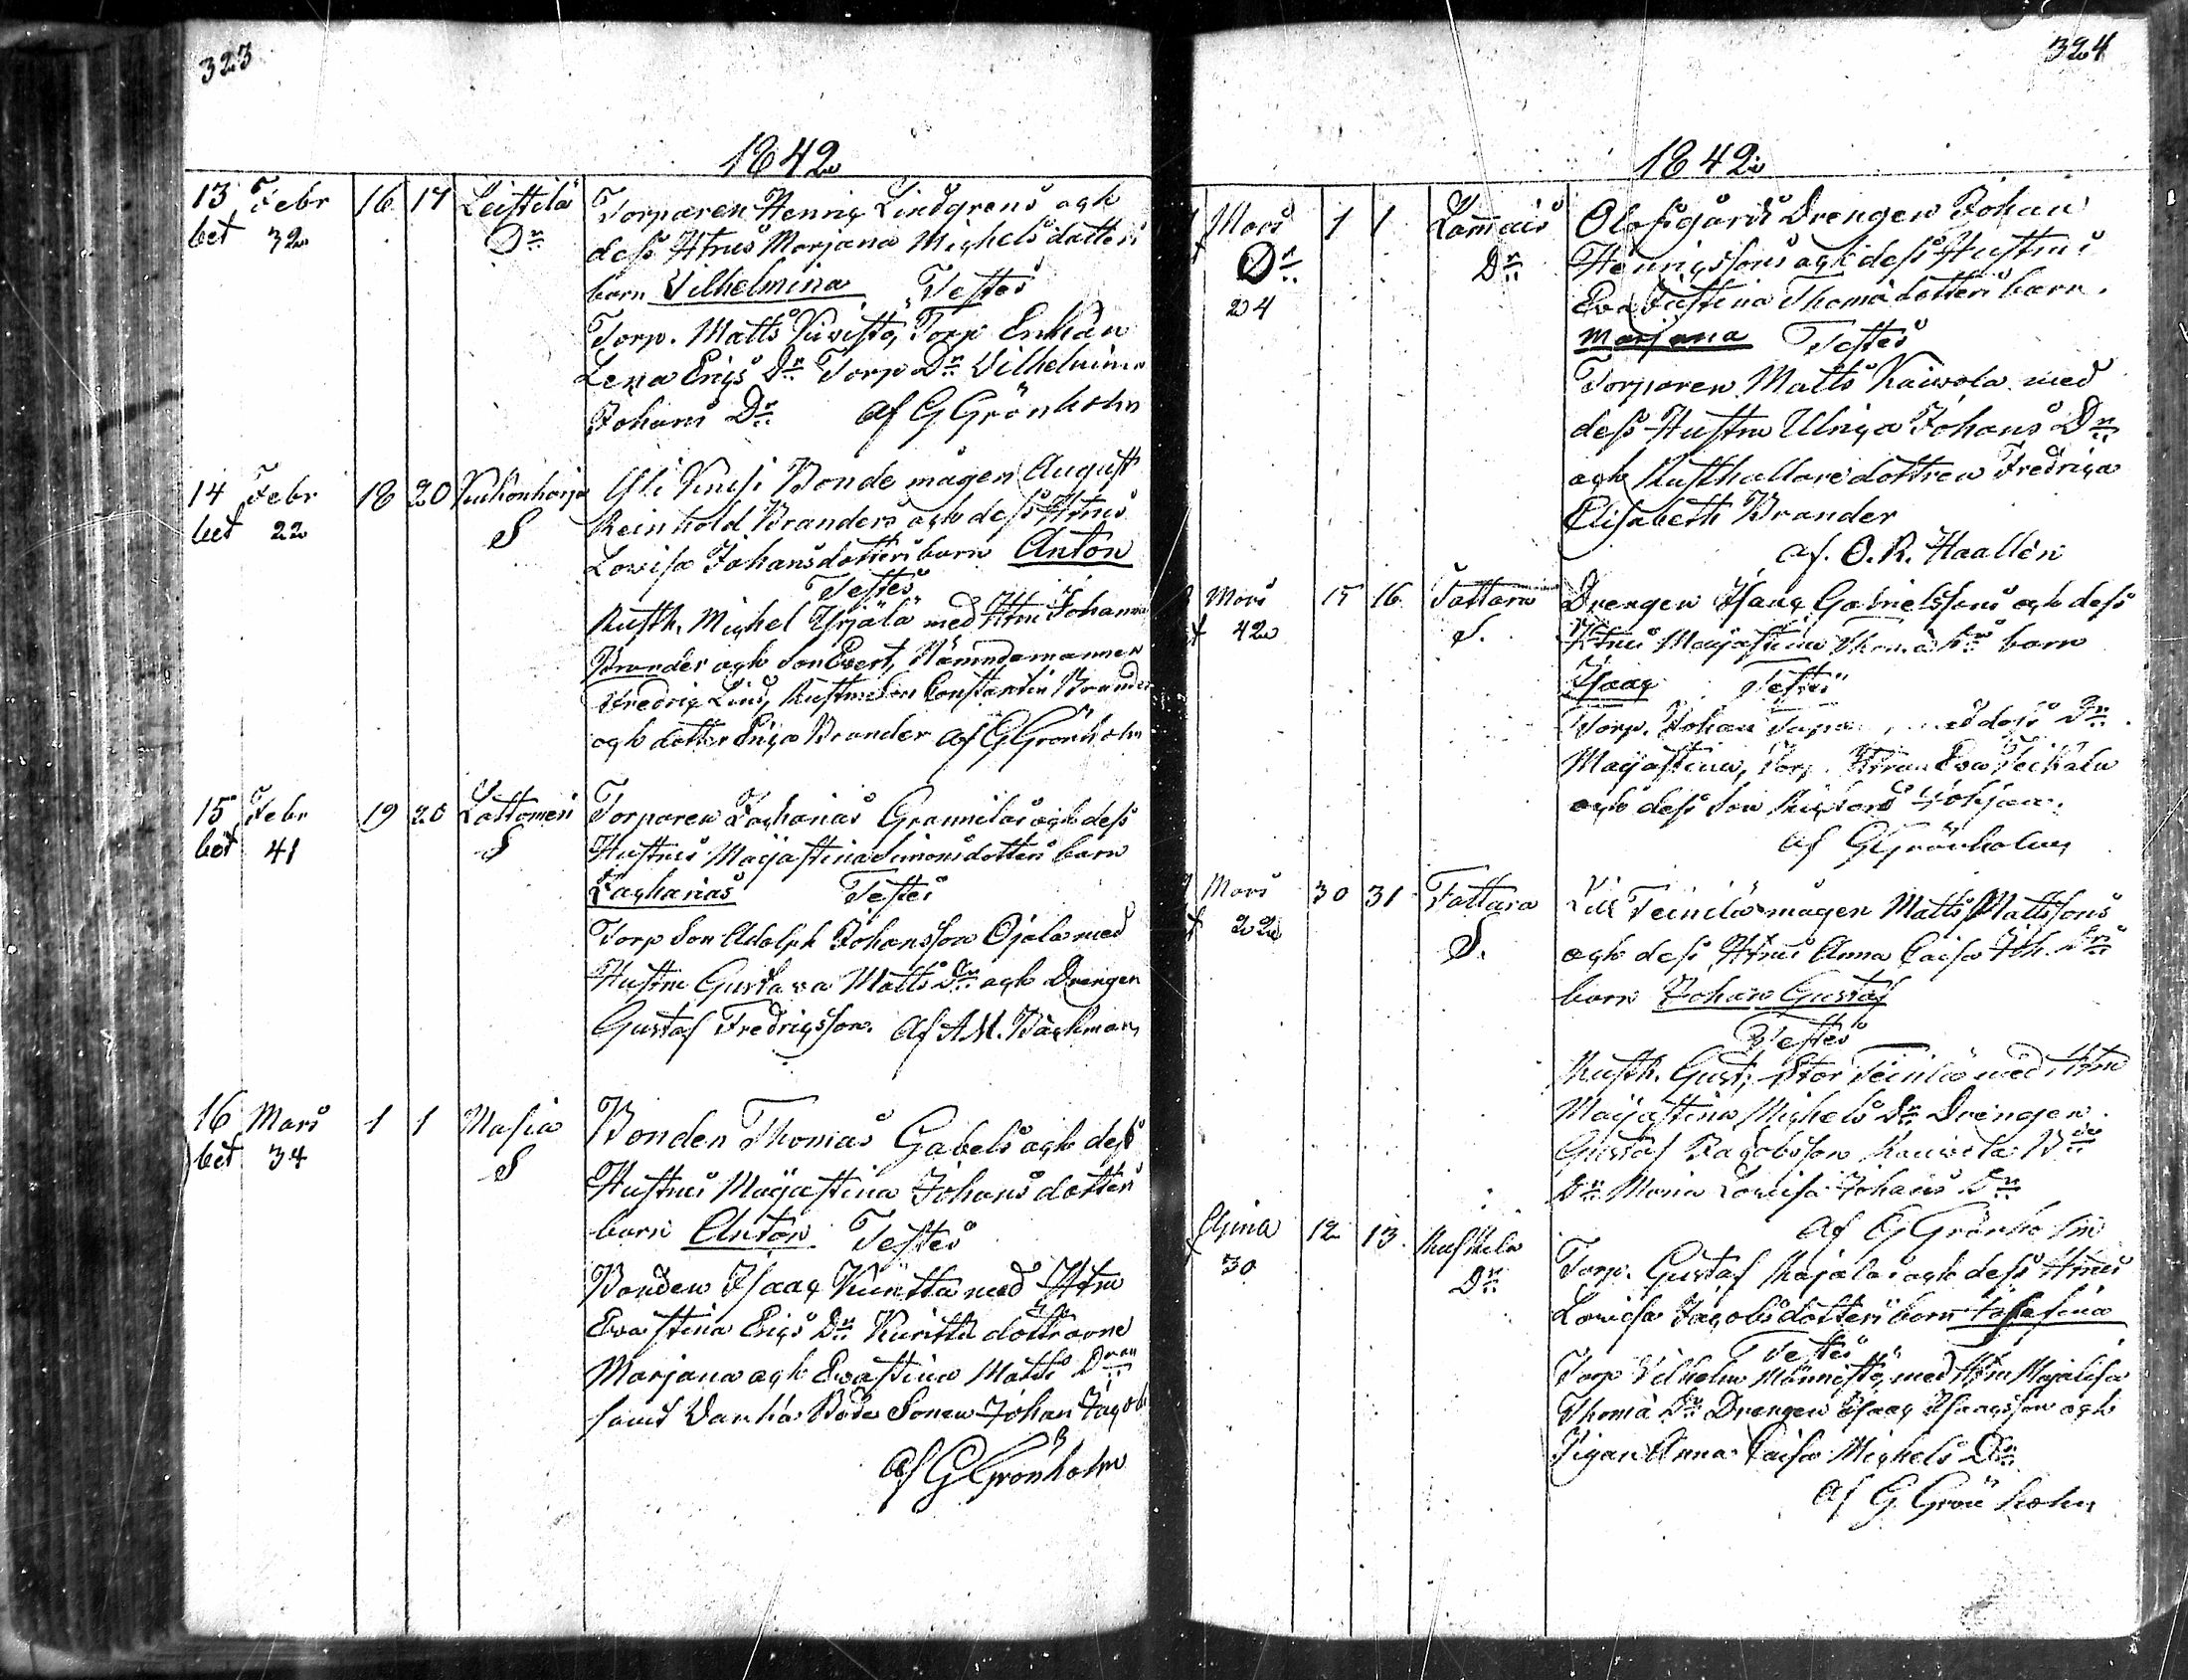 323
1842
13 Febr 16 17 Leistilä Torparen Henric Lindgrens och
bet 32 Dr dess Htrus Marjana Michelsdotters
barn Wilhelmina Testes
Torp. Matts Torp Enkan
Lena Erics Dr Torp Dr Vilhelmina
Johans Dr af G Grönholm
14 Febr 18 20 Kuckonharja Yli Knusi Bonde mågen August
bet 22 S Reinhold Branders och dess Htrus
Lovisa Johansdotters barn Anton
Testes
Rusth. Michel Yrjälä med Htru Johanna
Brander och son Evert, Nämndemannen
Fredric Lind, Constantin Brander
och dotter Erica Brander af G Grönholm
15 Febr 19 20 Lattomeri Torparen Zacharias Grannilas och dess
bet 41 S Hustrus Majastina Simonsdotters barn
Zacharias Testes
Torp Son Adolph Johansson Ojala med
Hustru Gustava Matts Dr och Drengen
Gustaf Fredricsson. af A.M. Backman
16 Mars 1 1 Masia Bonden Thomas Gabels och dess
bet 34 S Hustrus Majastina Johansdotters
barn Anton Testes
Bonden Isaac Kuritta med Htru
Evastina Erics Dr Kuritta döttrarne
Marjana och Evastina Matts Drar
samt Vanha Sonen Johan Jacob
af G Grönholm
324
1842
Mars 1 1 Lammais Olofsgårds Drengen Johan
Dr Dr Henricssons och dess Hustrus
24 Eva Justina Thomadotters barn
Marjana Testes
Torparen Matts Kaivola med
dess Hustru Ulrica Johans Dr
och Rusthållare dottren Fredrica
Elisabeth Brander
af. O. R. Haallèn
Mars 15 16 Tattara Drengen Isaac Gabrielssons och dess
42 S. Htrus Majastina Thoma Drs barn
Isaac Testes
Torp. Johan med dess Dr
Majastina, Torp. Eva
och dess Son
af G Grönholm
Mars 30 31 Tattara Lill Teinilä mågen Matts Mattssons
22 S. och dess Htrus Anna Caisa Joh. Drs
barn Johan Gustaf
Testes
Rusth. Gust. Stor Teinilä med Htru
Majastina Michels Dr Drengen
Gustaf Jacobsson
Dr Maria Lovisa Johans Dr
af G Grönholm
12 13 Ruskila Torp. Gustaf Rajalas och dess Htrus
30 Dr Lovisa Jacobsdotters barn Josefina
Testes
Torp Vilhelm Männistö, med Htru Majalisa
Thoma Dr Drengen Isaac Isaacsson och
Pigan Anna Caisa Michels Dr
af G Grönholm